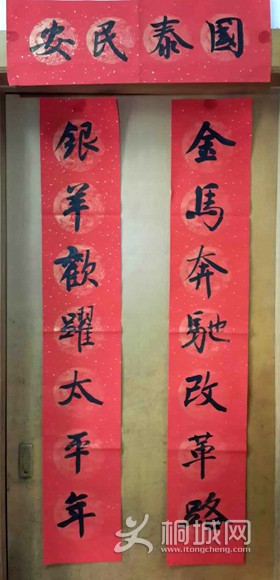 國泰民安
金馬奔馳改革路
銀羊歡躍太平年
桐城网
www.itongcheng.com